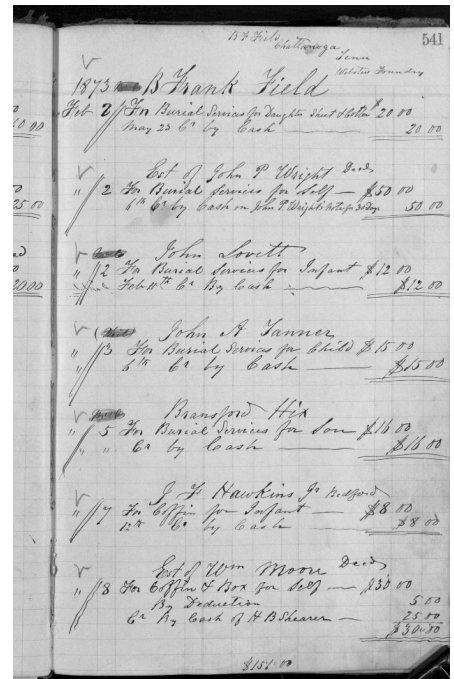 B F Field 541
Chattanooga
Tenn
Webster Foundry
1873 B Frank Field
Feb 2 For Burial Services for Daughter Sheet & Cotton $20 00
May 23 Cr by Cash 20 00
Est of John P Wright Decd
" 2 For Burial Services for Self — $50 00
6th Cr by Cash on John P Wright's Note for 30 Days 50 00
John Lovitt
" 2 For Burial Services for Infant $12 00
" Feb 11th Cr By Cash — $12 00
John A Tanner
" 3 For Burial Services for Child $15 00
" 6th Cr by Cash — $15 00
Bransford Hix
" 5 For Burial Services for Son $16 00
" " Cr by Cash — $16 00
J F Hawkins Jr Bedford
" 7 For Coffin for Infant — $8 00
12th Cr by Cash — $8 00
Est of Wm Moore Decd
" 8 For Coffin & Box for Self — $30 00
By Deduction 5 00
Cr By Cash of H B Shearer — 25 00
$30.00
$151.00
00
25 00
20 00